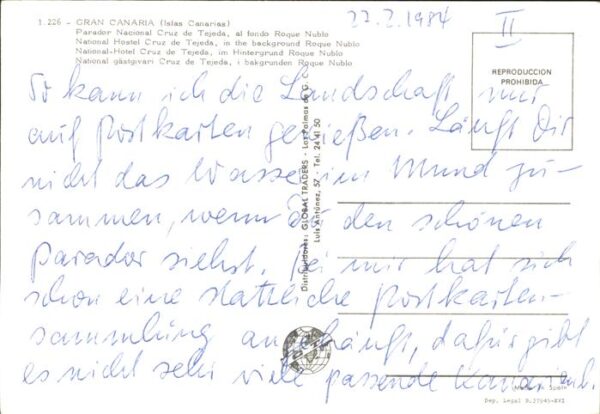 1.226 - GRAN CANARIA (Islas Canarias)
Parador Nacional Cruz de Tejeda, al fondo Roque Nublo
National Hostel Cruz de Tejeda, in the background Roque Nublo
National-Hotel Cruz de Tejeda, im Hintergrund Roque Nublo
National gästgivari Cruz de Tejeda, i bakgrunden Roque Nublo
27.2.1984
II
REPRODUCCION
PROHIBIDA
So kann ich die Landschaft nur
auf Postkarten genießen. Läuft Dir
nicht das Wasser im Mund zu-
sammen, wenn Du den schönen
Parador siehst. Bei mir hat sich
schon eine stattliche Postkarten-
sammlung angehängt, dafür gibt
es nicht sehr viele passende
Distribuidores: GLOBAL TRADERS - Las Palmas de G. C.
Luis Antúnez, 57 - Tel. 24 41 50
Dep. Legal B.27045-XVI